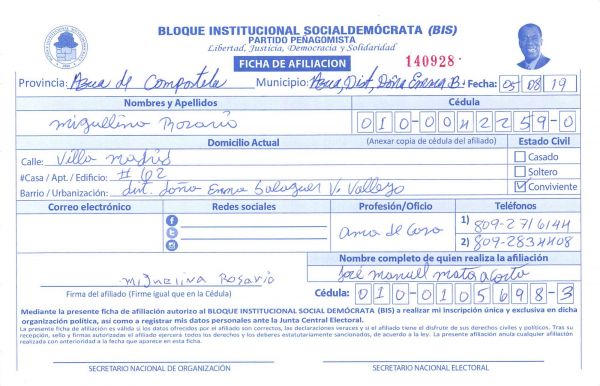 BLOQUE INSTITUCIONAL SOCIALDEMÓCRATA (BIS)
PARTIDO PEÑAGOMISTA
Libertad, Justicia, Democracia y Solidaridad
FICHA DE AFILIACION 140928
Provincia: Azua de Compostela Municipio: Azua, Dist, Doña Emma B. Fecha: 05 08 19
Nombres y Apellidos Cédula
Miguelina Rosario 010-0042259-0
Domicilio Actual (Anexar copia de cédula del afiliado) Estado Civil
Calle: Villa Madris Casado
#Casa / Apt. / Edificio: # 62 Soltero
Barrio / Urbanización: dit. Doña Enma Balaguer V. Vallejo Conviviente
Correo electrónico Redes sociales Profesión/Oficio Teléfonos
Ama de Casa 1) 809-2716144
2) 809-2834408
Nombre completo de quien realiza la afiliación
Miguelina Rosario José manuel mata
Firma del afiliado (Firme igual que en la Cédula) Cédula: 010-0105698-3
Mediante la presente ficha de afiliación autorizo al BLOQUE INSTITUCIONAL SOCIAL DEMÓCRATA (BIS) a realizar mi inscripción única y exclusiva en dicha
organización política, así como a registrar mis datos personales ante la Junta Central Electoral.
La presente ficha de afiliación es válida si los datos ofrecidos por el afiliado son correctos, las declaraciones veraces y si el afiliado tiene el disfrute de sus derechos civiles y políticos. Tras su
recepción, sello y firmas autorizadas el afiliado ejercerá todos los derechos y los deberes estatutariamente sancionados, de acuerdo a la ley. La presente afiliación anula cualquier afiliación
realizada con anterioridad a la fecha que aparece en esta ficha.
SECRETARIO NACIONAL DE ORGANIZACIÓN SECRETARIO NACIONAL ELECTORAL